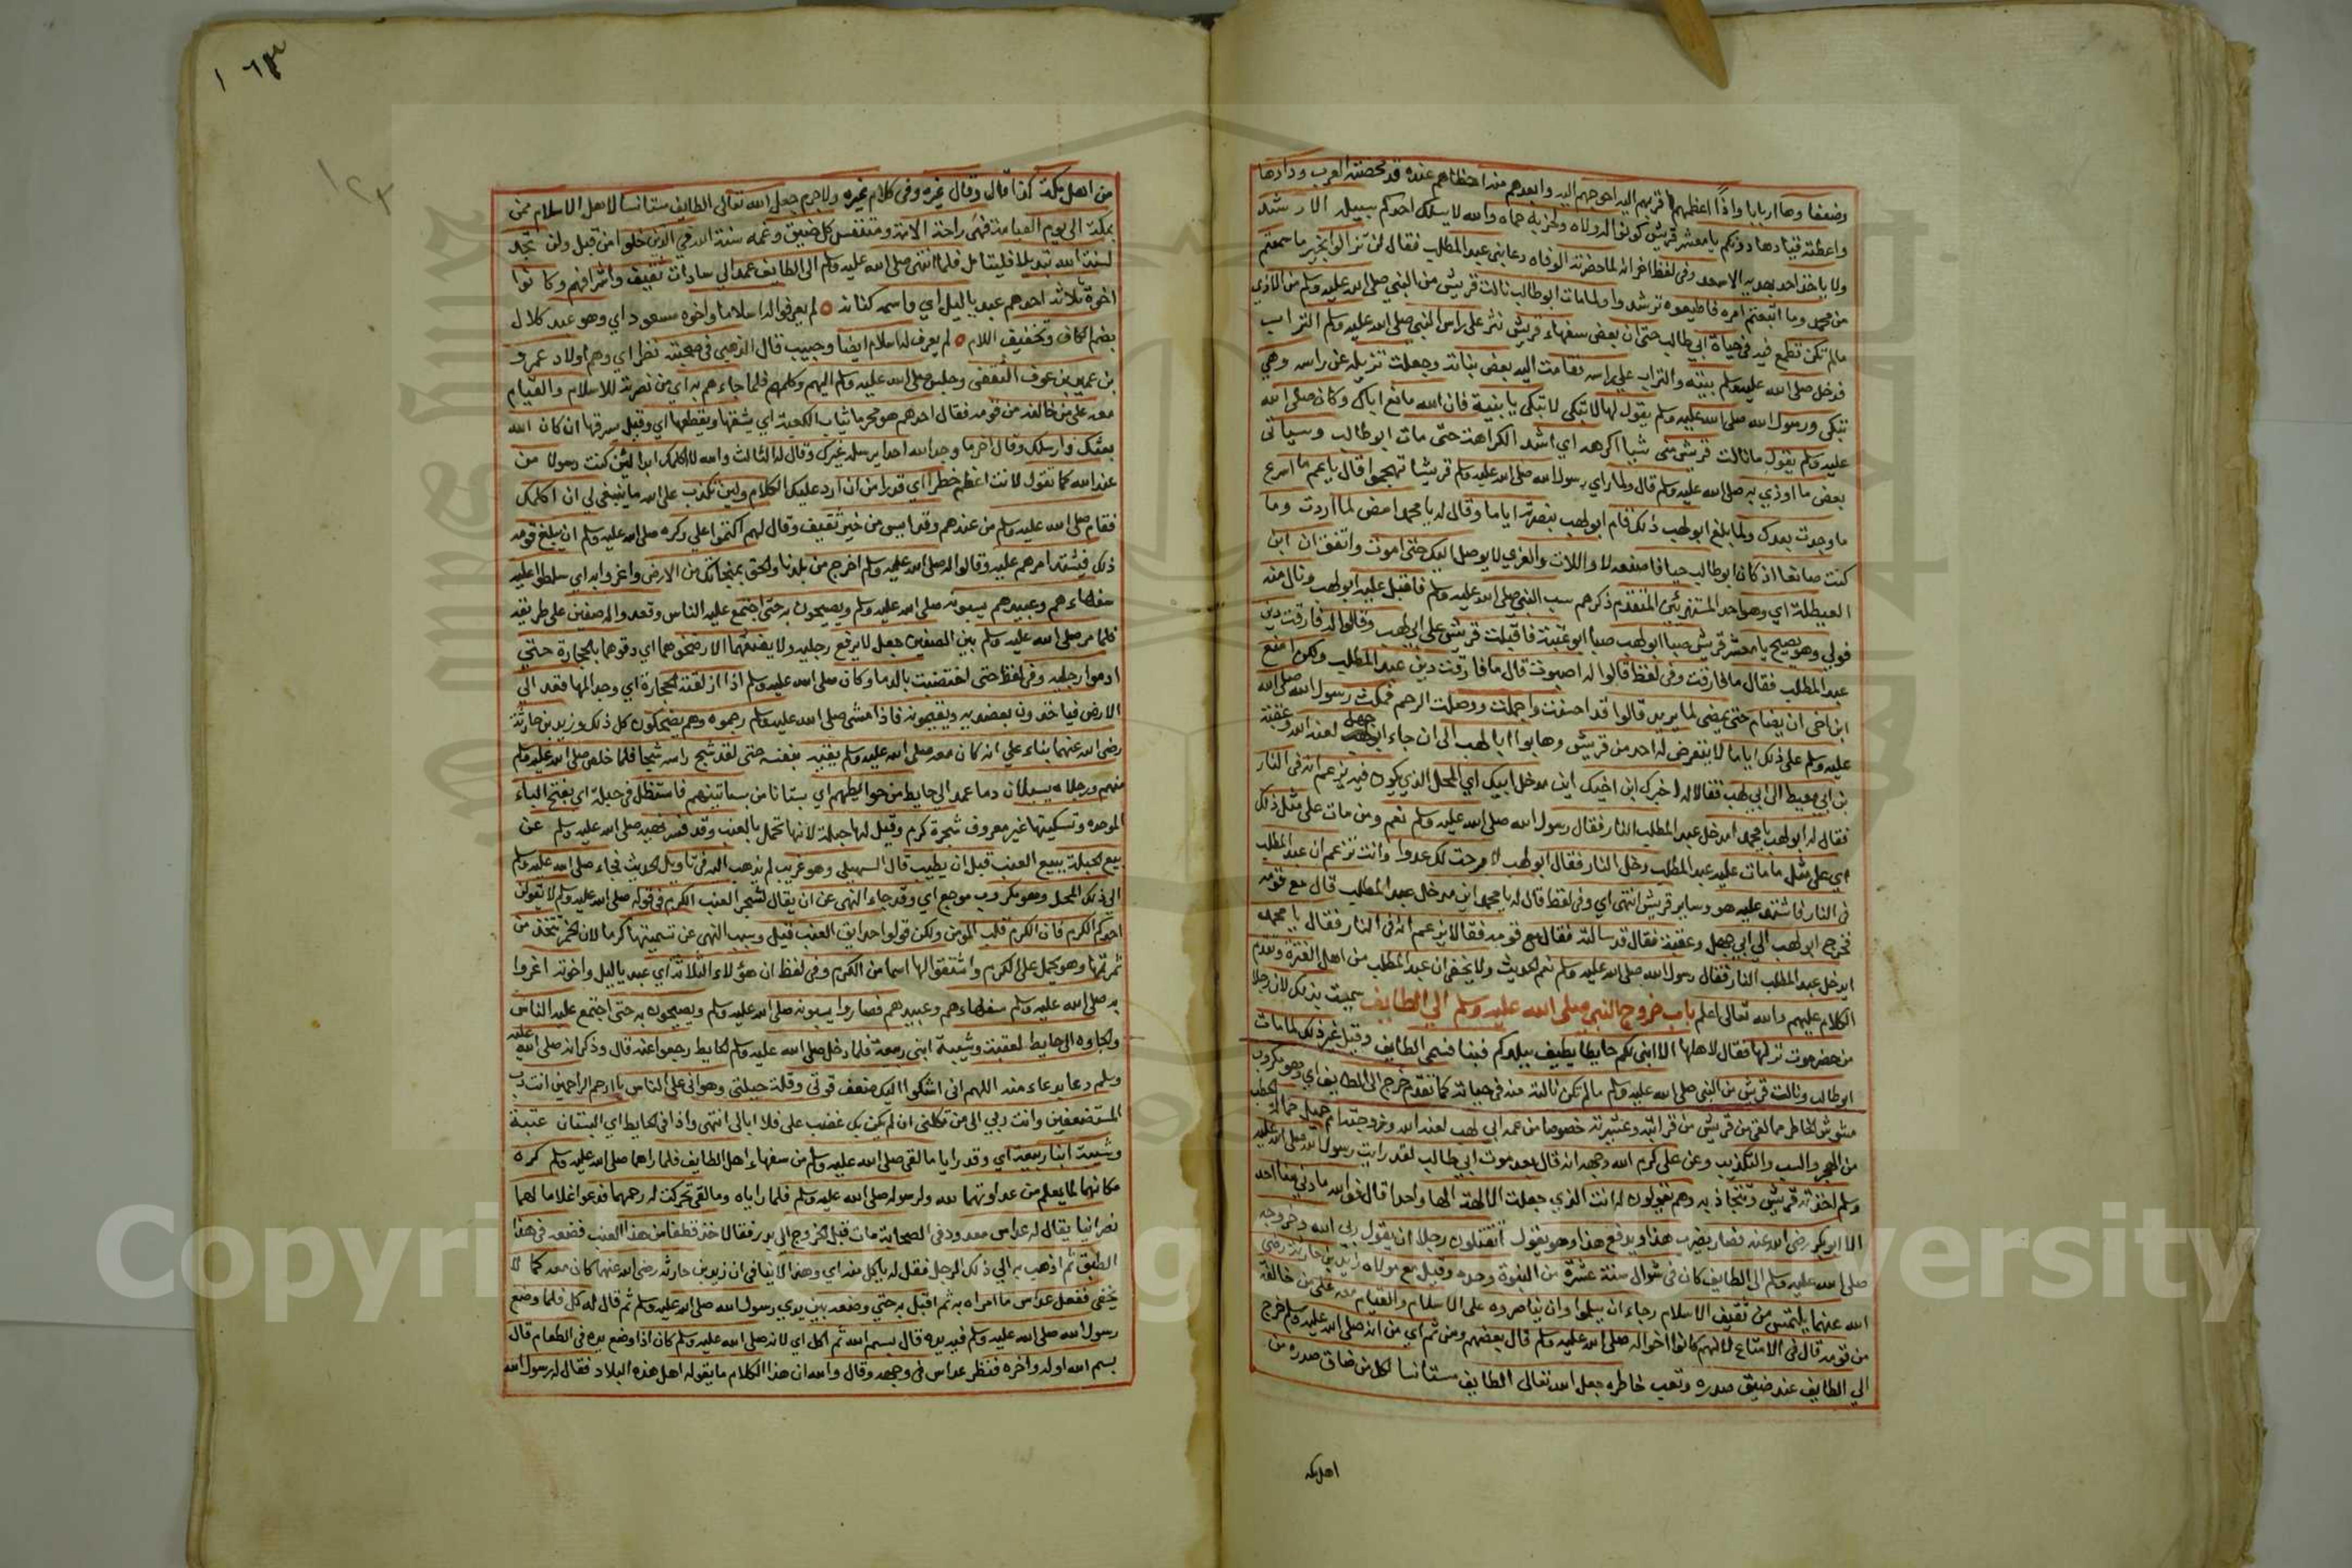 وضعفاوها اربابا واذا اعظمهم اقربهم اليه احوجهم اليه وابعدهم منه احظاهم عنده قد محضته العرب ودادها
واعطته قيادها دونكم يا معشر قريش كونوا له ولاه ولحزبه حماه والله لا يسلك احد منكم سبيله الا رشد
ولا ياخذ احد بهديه الا سعد وفي لفظ اخر انه لما حضرته الوفاه دعا بني عبد المطلب فقال لن تزالوا بخير ما سمعتم
من محمد وما اتبعتم امره فاطيعوه ترشدوا ولما مات ابو طالب نالت قريش من النبي صلى الله عليه وسلم من الاذي
مالم تكن تطمع فيه في حياة ابي طالب حتى ان بعض سفهاء قريش نثر على راس النبي صلى الله عليه وسلم التراب
فدخل صلى الله عليه وسلم بيته والتراب على راسه فقامت اليه بعض بناته وجعلت تزيله عن راسه وهي
تبكي ورسول الله صلى الله عليه وسلم يقول لها لا تبكي لا تبكي يا بنية فان الله مانع اباك وكان صلى الله
عليه وسلم يقول ما نالت قريش مني شيا اكرهه اي اشد الكراهة حتى مات ابو طالب وسياتي
بعض ما اوذي به صلى الله عليه وسلم قال ولما راي رسول الله صلى الله عليه وسلم قريشا تهجموا قال يا عم ما اسرع
ما وجدت بعدك ولما بلغ ابو لهب ذلك قام ابو لهب بنصرته اياما وقال له يا محمد امض لما اردت وما
كنت صانعا اذ كان ابو طالب حيا فاصنعه لا واللات والعزي لا يوصل اليك حتى اموت واتفق ان ابن
الغيطلة اي وهو احد المستهزئين المتقدم ذكرهم سب النبي صلى الله عليه وسلم فاقبل عليه ابو لهب ونال منه
فولي وهو يصيح يا معشر قريش صبا ابو لهب صبا ابو عتبة فاقبلت قريش على ابي لهب وقالوا له فارقت دين
عبد المطلب فقال ما فارقت وفي لفظ قالوا له اصبوت قال ما فارقت دين عبد المطلب ولكن امنع
ابن اخي ان يضام حتى يمضي لما يريد قالوا قد احسنت واجملت ووصلت الرحم فمكث رسول الله صلى الله
عليه وسلم على ذلك اياما لا يتعرض له احد من قريش وهابوا ابا لهب الى ان جاء ابو جهل لعنه الله وعقبة
بن ابي معيط الى ابي لهب فقالا له اخبرك ابن اخيك اين مدخل ابيك اي المحل الذي يكون فيه يزعم انه في النار
فقال له ابو لهب يا محمد ايدخل عبد المطلب النار فقال رسول الله صلى الله عليه وسلم نعم ومن مات على مثل ذلك
اي على مثل ما مات عليه عبد المطلب دخل النار فقال ابو لهب لا برحت لك عدوا وانت تزعم ان عبد المطلب
في النار فاشتد عليه هو وساير قريش انتهى اي وفي لفظ قال له يا محمد اين مدخل عبد المطلب قال مع قومه
فخرج ابو لهب الي ابي جهل وعقبة فقال قد سالته فقال مع قومه فقالا يزعم انه في النار فقال يا محمد
ايدخل عبد المطلب النار فقال رسول الله صلى الله عليه وسلم نعم الحديث ولا يخفى ان عبد المطلب من اهل الفترة وتقدم
الكلام عليهم والله تعالى اعلم باب خروج النبي صلى الله عليه وسلم الي الطايف سميت بذلك لان رجلا
من حضرموت نزلها فقال لاهلها الا ابني لكم حايطا يطيف ببلدكم فبناه فسمي الطايف وقيل غير ذلك لما مات
ابو طالب ونالت قريش من النبي صلى الله عليه وسلم مالم تكن نالته منه في حياته كما تقدم خرج الى الطايف اي وهو مكروب
مشوش الخاطر مما لقي من قريش من قرابته وعشيرته خصوصا من عمه ابي لهب لعنه الله وزوجته ام جميل حمالة الحطب
من الهجو والسب والتكذيب وعن علي كرم الله وجهه انه قال بعد موت ابي طالب لقد رايت رسول الله صلى الله عليه
وسلم اخذته قريش تتجاذبه وهم يقولون له انت الذي جعلت الالهة الها واحدا قال فوالله ما دني منا احد
الا ابو بكر رضي الله عنه فصار يضرب هذا ويدفع هذا وهو يقول اتقتلون رجلا ان يقول ربي الله وخروجه
صلى الله عليه وسلم الى الطايف كان في شوال سنة عشرة من النبوة وحده وقيل مع مولاه زيد بن حارثة رضي
الله عنهما يلتمس من ثقيف الاسلام رجاء ان يسلموا وان يناصروه على الاسلام والقيام معه على من خالفه
من قومه قال في الامتاع لانهم كانوا اخواله صلى الله عليه وسلم قال بعضهم ومن ثم اي من انه صلى الله عليه وسلم خرج
الي الطايف عند ضيق صدره وتعب خاطره جعل الله تعالى الطايف مستانسا لكل من ضاق صدره من
اهل مكه
١٦٣
١٢٣
من اهل مكة كذا قال وقال غيره وفي كلام غيره ولا جرم جعل الله تعالى الطايف مستانسا لاهل الاسلام ممن
بمكة الى يوم القيامة فهي راحة الامة ومتنفس كل ضيق وغمه سنة الله في الذين خلوا من قبل ولن تجد
لسنة الله تبديلا فليتامل فلما انتهى صلى الله عليه وسلم الى الطايف عمد الي سادات ثقيف واشرافهم وكانوا
اخوة ثلاثه احدهم عبد ياليل اي واسمه كنانه لم يعرفوا له اسلاما واخوه مسعود اي وهو عبد كلال
بضم الكاف وتخفيف اللام لم يعرف له اسلام ايضا وحبيب قال الذهبي في صحبته نظر اي وهم اولاد عمرو
بن عمير بن عوف الثقفي وجلس صلى الله عليه وسلم اليهم وكلمهم فلما جاءهم به اي من نصرته للاسلام والقيام
معه على من خالفه من قومه فقال احدهم هو يمرط ثياب الكعبة اي يشقها ويقطعها اي وقيل سرقها ان كان الله
بعثك وارسلك وقال اخر ما وجد الله احدا يرسله غيرك وقال له الثالث والله لا اكلمك ابدا لئن كنت رسولا من
عند الله كما تقول لانت اعظم خطرا اي قدرا من ان ارد عليك الكلام ولين تكذب على الله ما ينبغي لي ان اكلمك
فقام صلى الله عليه وسلم من عندهم وقد ايس من خير ثقيف وقال لهم اكتموا علي وكره صلى الله عليه وسلم ان يبلغ قومه
ذلك فيشتد امرهم عليه وقالوا له صلى الله عليه وسلم اخرج من بلدنا والحق بمنجاتك من الارض واغروا به اي سلطوا عليه
سفهاءهم وعبيدهم يسبونه صلى الله عليه وسلم ويصيحون به حتى اجتمع عليه الناس وقعدوا له صفين على طريقه
فلما مر صلى الله عليه وسلم بين الصفين جعل لا يرفع رجليه ولا يضعهما الا رضخوهما اي دقوهما بالحجارة حتي
ادموا رجليه وفي لفظ حتى اختضبت بالدما وكان صلى الله عليه وسلم اذا ازلقته الحجارة اي وجد المها قعد الي
الارض فياخذون بعضديه ويقيمونه فاذا مشى صلى الله عليه وسلم رجموه وهم يضحكون كل ذلك وزيد بن حارثة
رضي الله عنهما بناء على انه كان معه صلى الله عليه وسلم يقيه بنفسه حتى لقد شج راسه شجا فلما خلص صلى الله عليه وسلم
منهم ورجلاه يسيلان دما عمد الي حايط من حوايطهم اي بستانا من بساتينهم فاستظل في حبلة اي بفتح الباء
الموحده وتسكينها غير معروف شجرة كرم وقيل لها حبلة لانها تحمل بالعنب وقد فسر نهيه صلى الله عليه وسلم عن
بيع الحبلة ببيع العنب قبل ان يطيب قال السهيلي وهو غريب لم يذهب اليه في تاويل الحديث فجاء صلى الله عليه وسلم
الى ذلك المحل وهو مكروب موجع اي وقد جاء النهى عن ان يقال لشجر العنب الكرم في قوله صلى الله عليه وسلم لا تقولن
احدكم الكرم فان الكرم قلب المومن ولكن قولوا حدايق العنب قيل وسبب النهى عن تسميتها كرما لان الخمر تتخذ من
ثمرتها وهو يحمل على الكرم واشتقوا لها اسما من الكرم وفي لفظ ان هؤلاء الثلاثة اي عبد ياليل واخوته اغروا
به صلى الله عليه وسلم سفهاءهم وعبيدهم فصاروا يسبونه صلى الله عليه وسلم ويصيحون به حتى اجتمع عليه الناس
والجاوه الى حايط لعتبة وشيبة ابني ربيعة فلما دخل صلى الله عليه وسلم الحايط رجعوا عنه قال وذكر انه صلى الله عليه
وسلم دعا بدعاء منه اللهم اني اشكوا اليك ضعف قوتي وقلة حيلتي وهواني على الناس يا ارحم الراحمين انت رب
المستضعفين وانت ربي الى من تكلني ان لم يكن بك غضب علي فلا ابالي انتهى واذا في الحايط اي البستان عتبة
وشيبة ابنا ربيعة اي وقد رايا ما لقي صلى الله عليه وسلم من سفهاء اهل الطايف فلما راهما صلى الله عليه وسلم كره
مكانهما لما يعلم من عداوتهما لله ولرسوله صلى الله عليه وسلم فلما راياه وما لقي تحركت له رحمهما فدعوا غلاما لهما
نصرانيا يقال له عداس معدود في الصحابة مات قبل الخروج الى بدر فقالا خذ قطفا من هذا العنب فضعه في هذا
الطبق ثم اذهب به الي ذلك الرجل فقل له ياكل منه اي وهذا لا ينافي ان زيد بن حارثه رضي الله عنهما كان معه كما لا
يخفى ففعل عداس ما امراه به ثم اقبل به حتي وضعه بين يدي رسول الله صلى الله عليه وسلم ثم قال له كل فلما وضع
رسول الله صلى الله عليه وسلم فيه يده قال بسم الله ثم اكل اي لانه صلى الله عليه وسلم كان اذا وضع يده في الطعام قال
بسم الله اوله واخره فنظر عداس في وجهه وقال والله ان هذا الكلام ما يقوله اهل هذه البلاد فقال له رسول الله